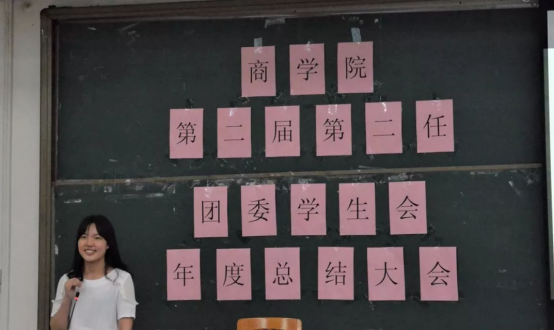 商学院
第二届第二任
团委学生会
年度总结大会